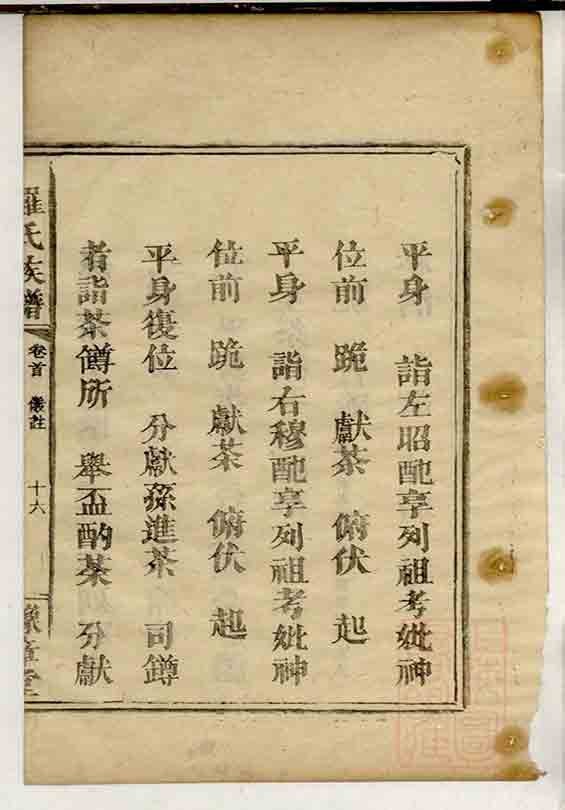 平身 詣左昭配享列祖考妣神
位前 跪 獻茶 俯伏 起
平身 詣右穆配享列祖考妣神
位前 跪 獻茶 俯伏 起
平身復位 分獻孫進茶 司鐏
者詣茶鐏所 舉盃酌茶 分獻
羅氏族譜 卷首 儀註 十六 豫章堂